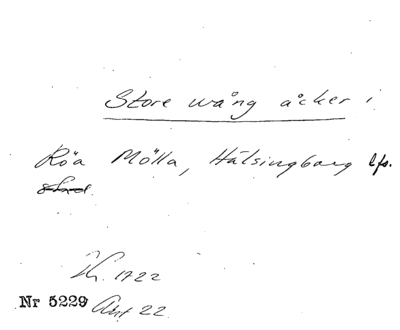 Store wång åcker i
Röa Mölla, Hälsingborg lfs.
stad
K. 1722
Nr 5229 Akt 22